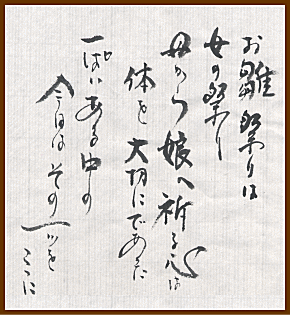 お雛祭りは
女の祭り
母から娘へ祈る心は
体を大切にであった
一ぱいある中の
今日はその一ツを
ここに